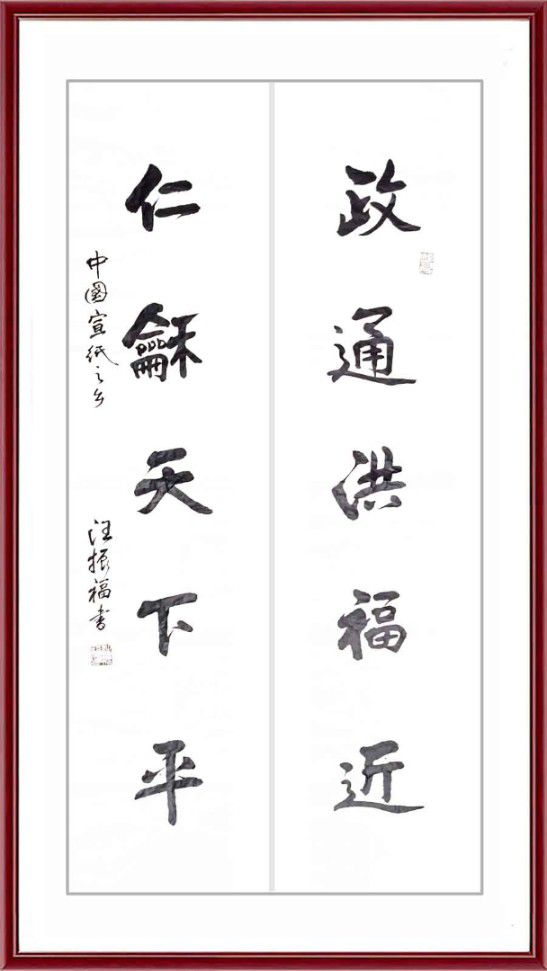 政通洪福近
仁龢天下平
中國宣纸之乡
汪振福书